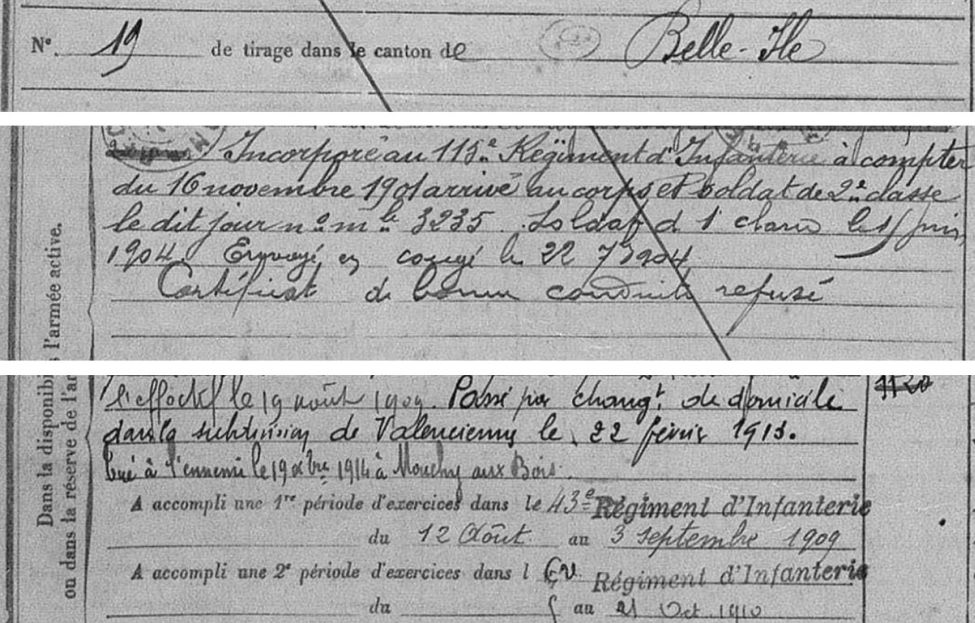 N°. 19 de tirage dans le canton de Belle-Ile
Incorporé au 115e Régiment d'Infanterie à compter
du 16 novembre 1901 arrivé au corps et soldat de 2e classe
le dit jour n° mle 3235. Soldat d 1 classe le juin
1904 Envoyé en congé le 22 7 1904
Certificat de bonne conduite refusé
l'armée active.
Dans la disponibi
ou dans la réserve de l'ar
le 19 août 1909 Passé par changt de domicile
dans la subdivision de Valenciennes le 22 février 1913.
tué à l'ennemi le 19 Xbre 1914 à Mouchy aux Bois.
A accompli une 1re période d'exercices dans le 43e Régiment d'Infanterie
du 12 Août au 3 septembre 1909
A accompli une 2e période d'exercices dans l Régiment d'Infanterie
du au 21 Oct 1910